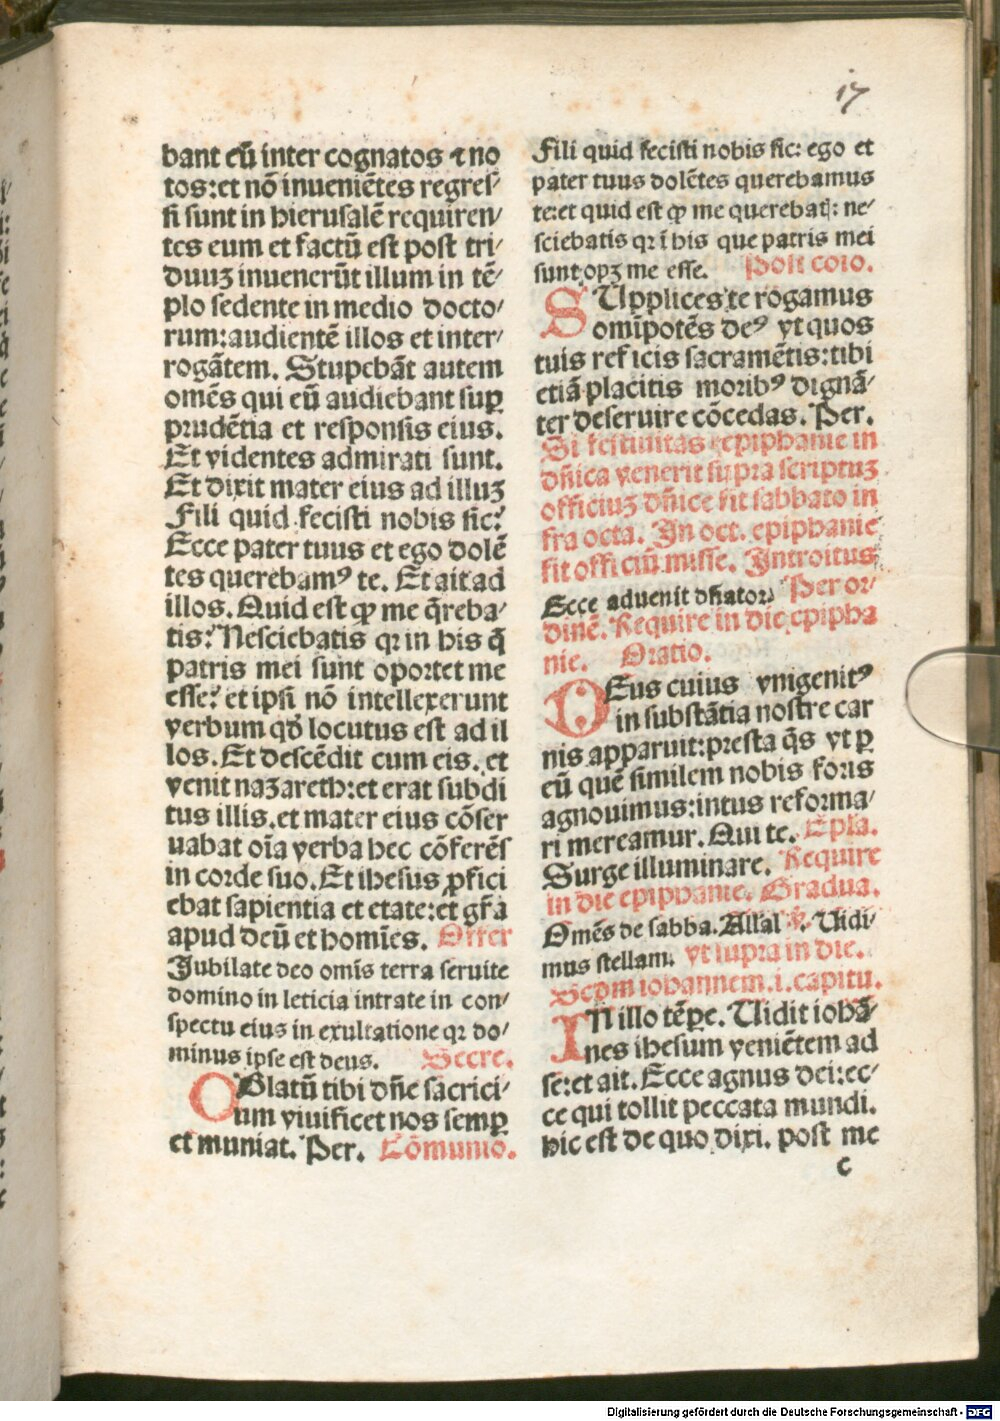 17
bant eū inter cognatos ⁊ no
tos:et nō inueniētes regres⸗
si sunt in hierusalē requiren⸗
tes eum et factū est post tri⸗
duuꝫ inuenerūt illum in tē⸗
plo sedente in medio docto⸗
rum:audientē illos et inter⸗
rogātem. Stupebāt autem
omēs qui eū audiebant suꝑ
prudētia et responsis eius.
Et videntes admirati sunt.
Et dixit mater eius ad illuꝫ
Fili quid fecisti nobis sic?
Ecce pater tuus et ego dolē
tes querebamꝰ te. Et ait ad
illos. Quid est ꝙ me q̄reba⸗
tis? Nesciebatis qꝛ in his q̄
patris mei sunt oportet me
esse? et ipsi nō intellexerunt
verbum qd̄ locutus est ad il
los. Et descēdit cum eis. et
venit nazareth:et erat subdi
tus illis. et mater eius cōser
uabat oīa verba hec cōferēs
in corde suo. Et ihesus ꝓfici
ebat sapientia et etate:et gr̄a
apud deū et homīes. Offer
Jubilate deo omīs terra seruite
domino in leticia intrate in con⸗
spectu eius in exultatione qꝛ do⸗
minus ipse est deus. Secre.
OBlatū tibi dn̄e sacrici⸗
um viuificet nos semꝑ
et muniat. Per. Cōmunio.
Fili quid fecisti nobis sic: ego et
pater tuus dolētes querebamus
te:et quid est ꝙ me querebatꝭ: ne⸗
sciebatis qꝛ ī his que patris mei
sunt opꝫ me esse. Post cōio.
SUpplices te rogamus
omīpotēs deꝰ vt quos
tuis reficis sacramētis:tibi
etiā placitis moribꝰ dignā⸗
ter deseruire cōcedas. Per.
Si festiuitas epiphanie in
dn̄ica venerit supra scriptuꝫ
officiuꝫ dn̄ice fit sabbato in
fra octa. In oct. epiphanie
fit officiū misse. Introitus
Ecce aduenit dn̄ator. Per or⸗
dinē. Require in die epipha
nie. Oratio.
DEus cuius vnigenitꝰ
in substātia nostre car
nis apparuit:presta q̄s vt ꝑ
eū quē similem nobis foris
agnouimus:intus reforma⸗
ri mereamur. Qui te. Epla.
Surge illuminare. Require
in die epiphanie. Gradua.
Omēs de sabba. Allal ℣. Uidi⸗
mus stellam. vt supra in die.
Scdm iohannem .i. capitu.
IN illo tēpe. Uidit iohā⸗
nes ihesum veniētem ad
se:et ait. Ecce agnus dei:ec⸗
ce qui tollit peccata mundi.
hic est de quo dixi. post me
c
Digitalisierung gefördert durch die Deutsche Forschungsgemeinschaft - DFG